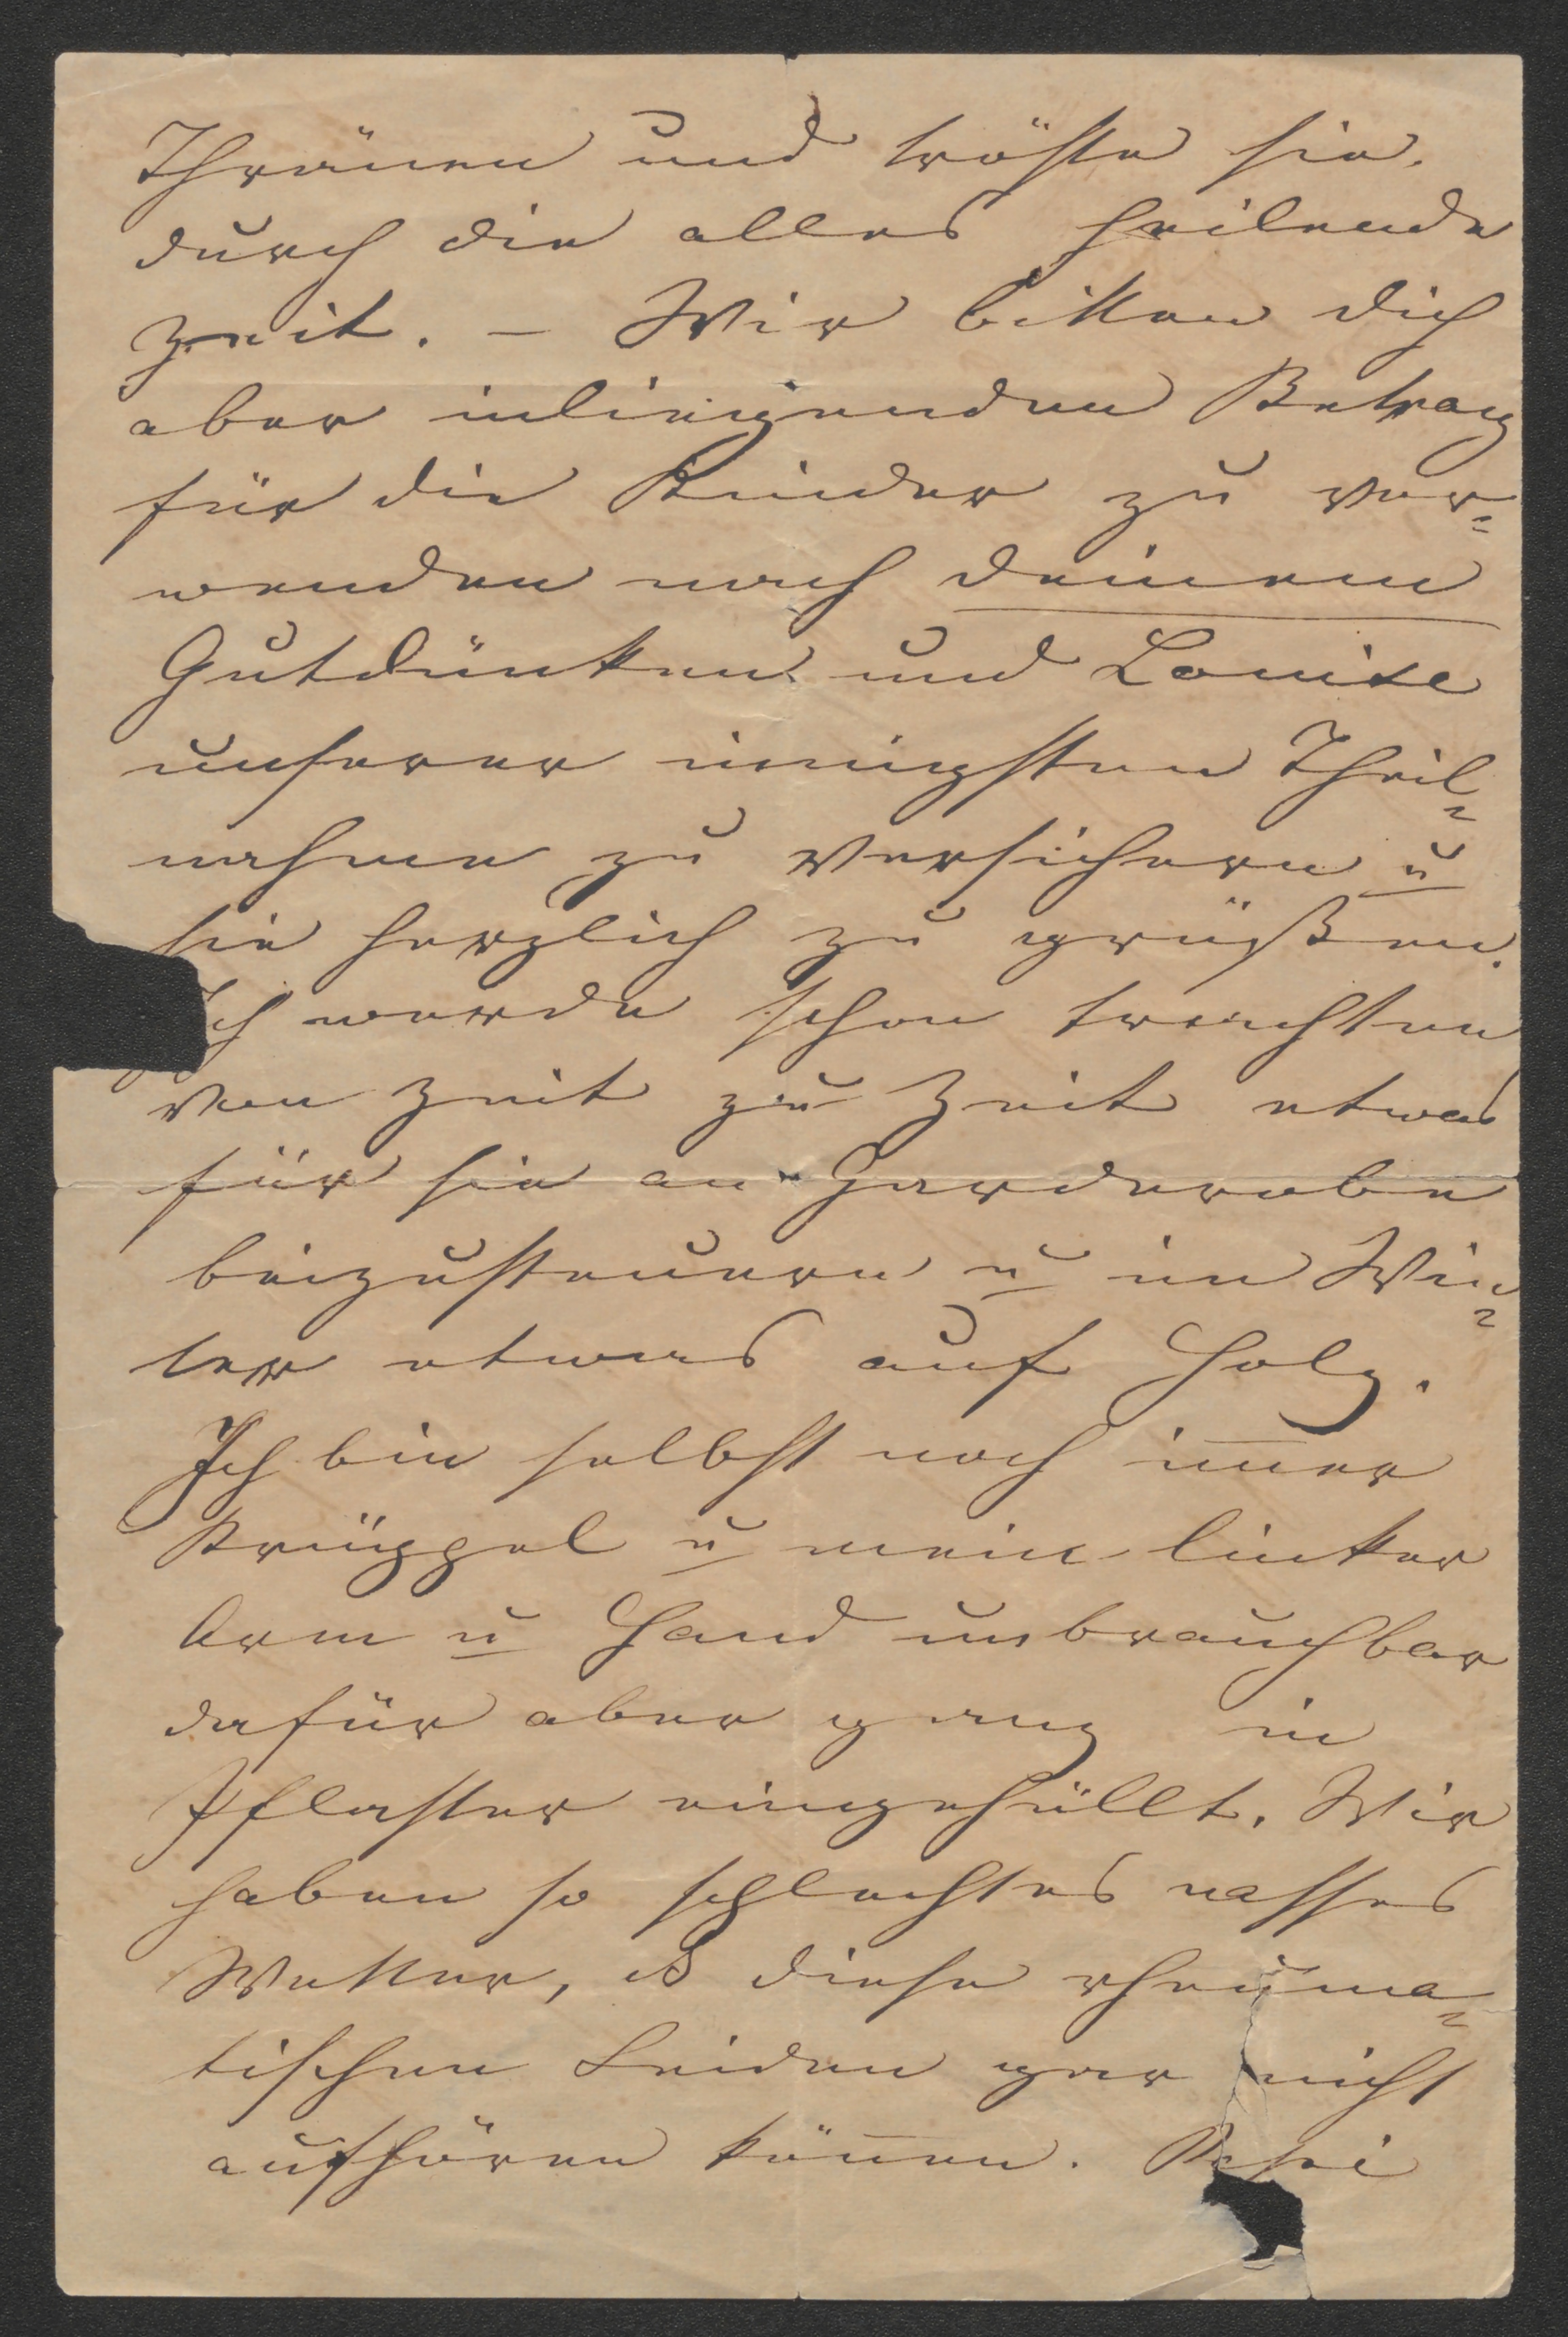 Thränen und tröste sie.
durch die alles heilende
Zeit. – Wir bitten dich
aber inliegenden Betrag
für die Kinder zu ver=
wenden nach deinem
Gutdünken und Louise
unserer innigsten Theil=
nahme zu versichern u
sie herzlich zu grüßen.
Ich werde schon trachten
von Zeit zu Zeit etwas
für sie an Garderobe
beizusteuern u im Win=
ter etwas auf Holz.
Ich bin selbst noch im̅er
Krüppel u mein linker
Arm u Hand unbrauchbar
dafür aber ganz in
Pflaster eingehüllt. Wir
haben so schlechtes nasses
Wetter, daß diese rheuma=
tischen Leiden gar nicht
aufhören kön̅en.